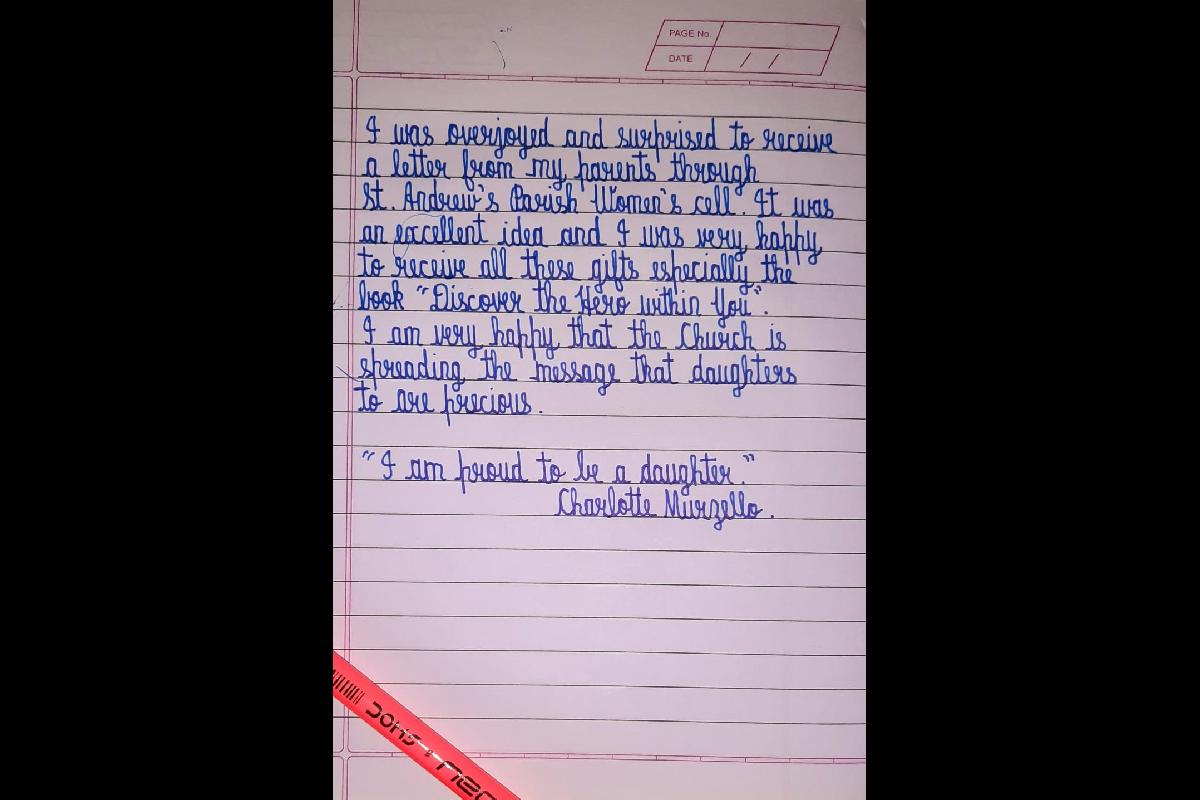 PAGE No.
DATE / /
I was overjoyed and surprised to receive
a letter from my parents through
St. Andrew's Parish Women's cell. It was
an excellent idea and I was very happy
to receive all these gifts especially the
book "Discover the Hero within You".
I am very happy that the Church is
spreading the message that daughters
to are precious.
"I am proud to be a daughter."
Charlotte Murzello.
DOMS neo